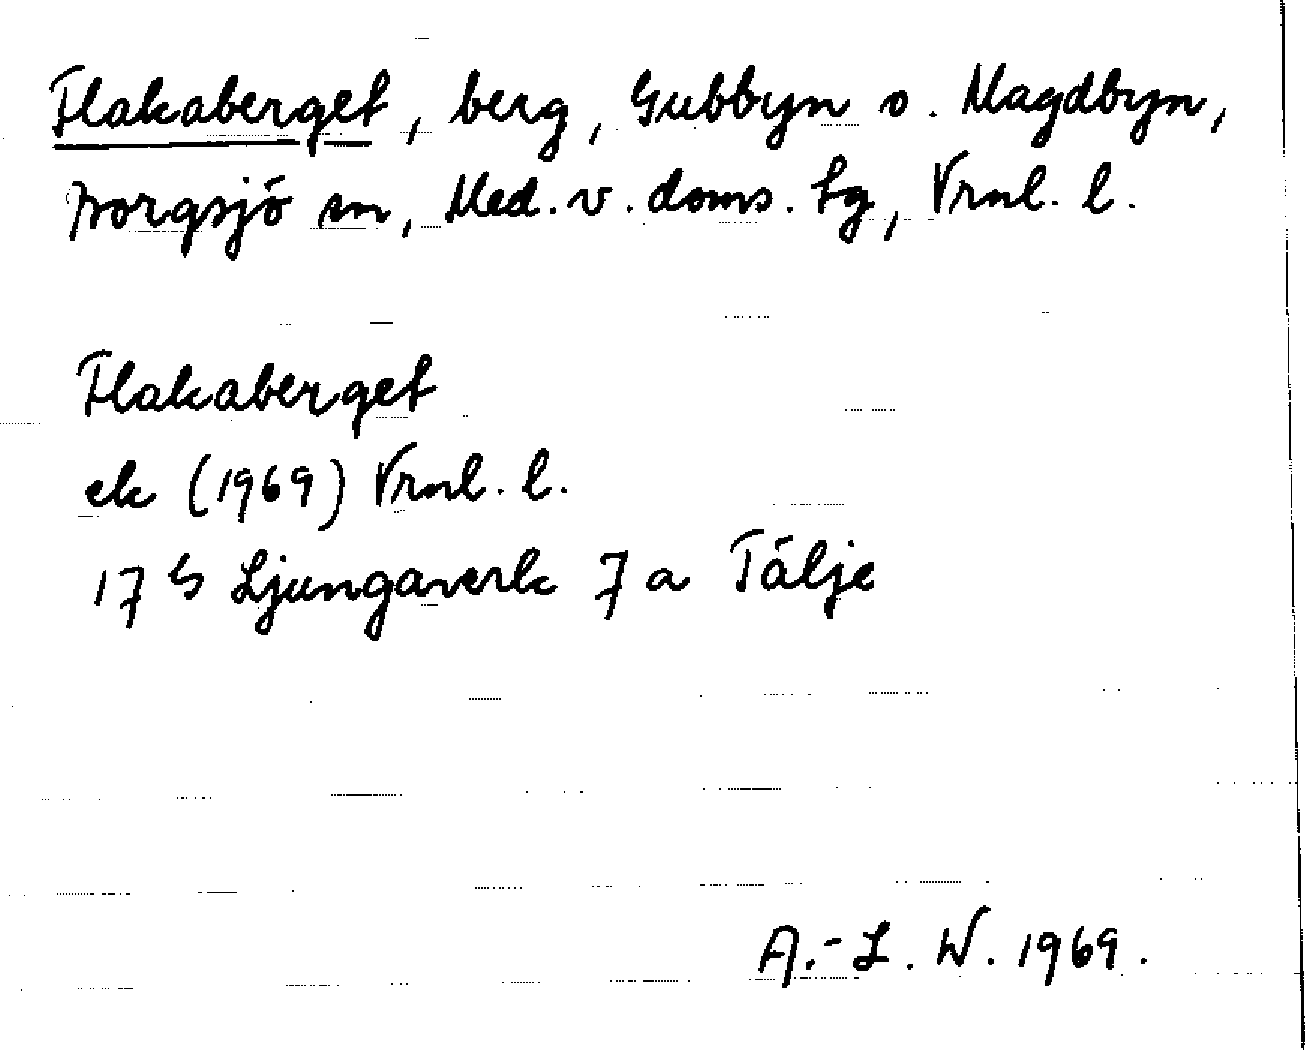 Flakaberget, berg, Gubbyn o. Magdbyn,
Borgsjö sn, Med. v. doms. tg, Vrnl. l.
Flakaberget
ek (1969) Vrnl. l.
17 G Ljungaverk 7 a Tälje
A.-L. W. 1969.